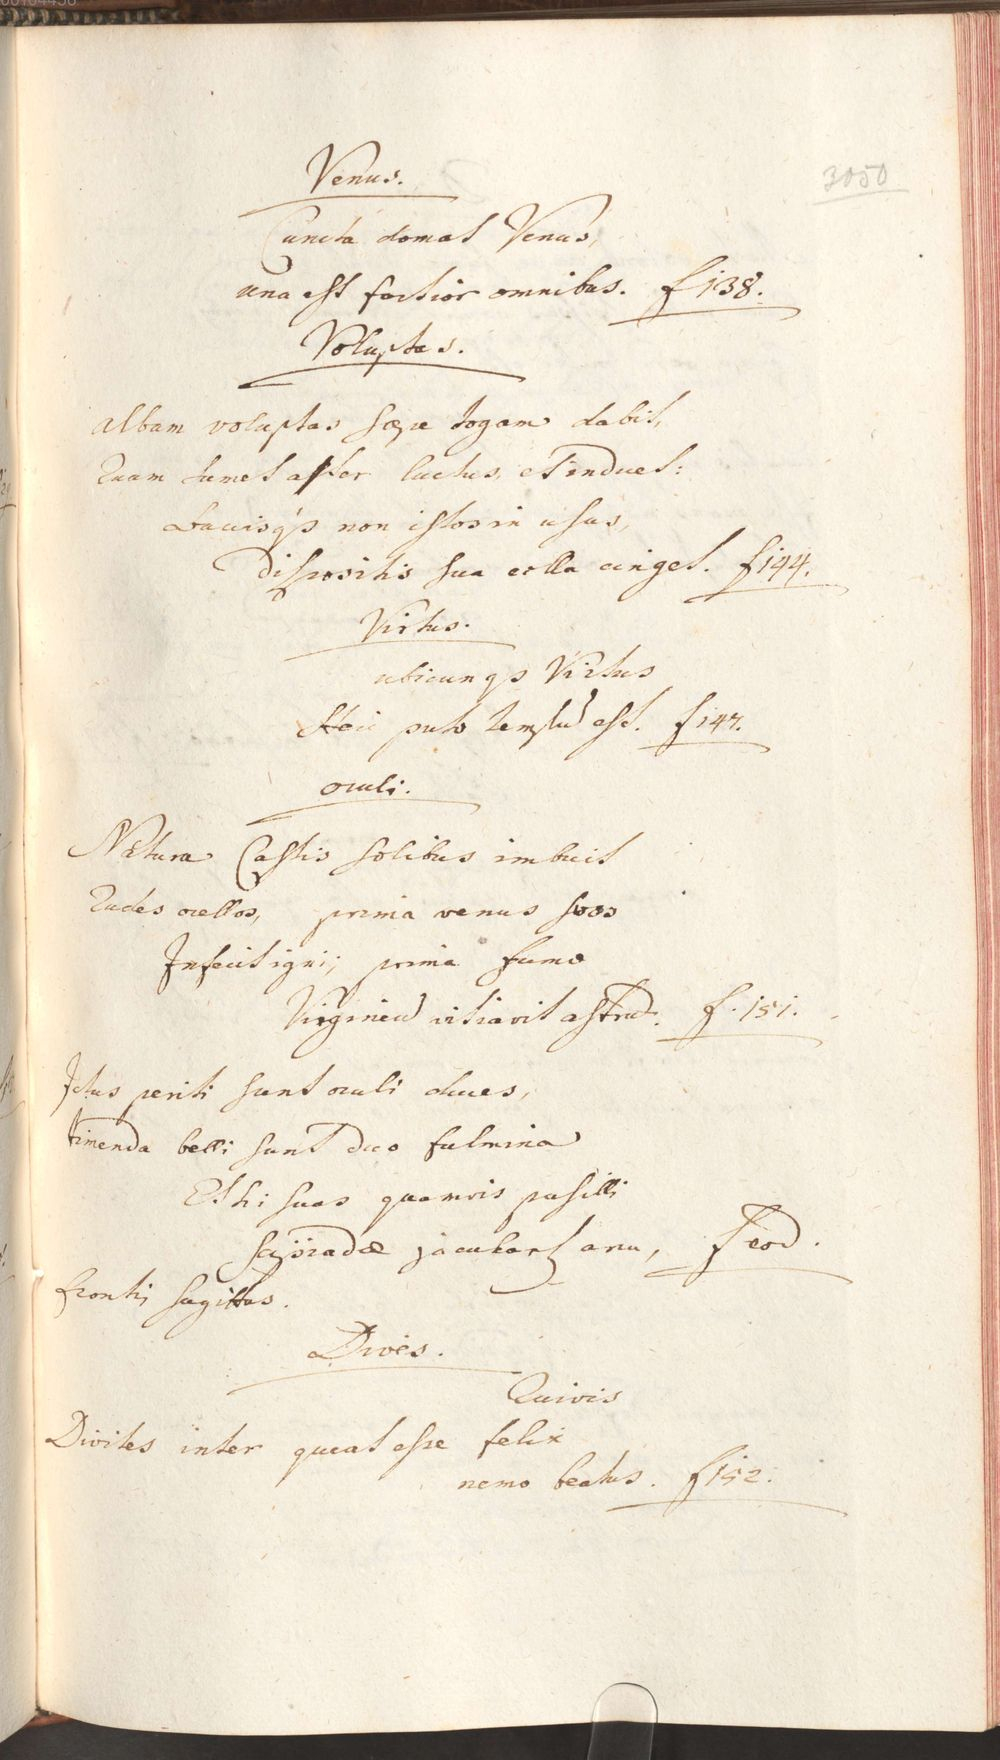 3050
Venus.
Cuncta domat Venus,
una est fortior omnibus. f 138.
Voluptas.
Albam voluptas sæpe togam dabit,
Quam sumet after luctus, et induet:
Baccisqs non istos in usus,
Dispositis sua colla cinget. f 144.
Virtus.
ubicunqs Virtus
Heic puto templu est. f 147.
oculi.
Natura Castis solibus imbuit
Rudes ocellos, prima venus suos
Infecit igni; prima fumo
Virgineu vitiavit astru. f. 151.
Ictus periti sunt oculi duces,
timenda belli sunt duo fulmina
Et hi suas quamvis pusilli
jaculant arcu, f eod.
fronti sagittas.
Dives.
Quivis
Divites inter queat esse felix
nemo beatus. f 152.